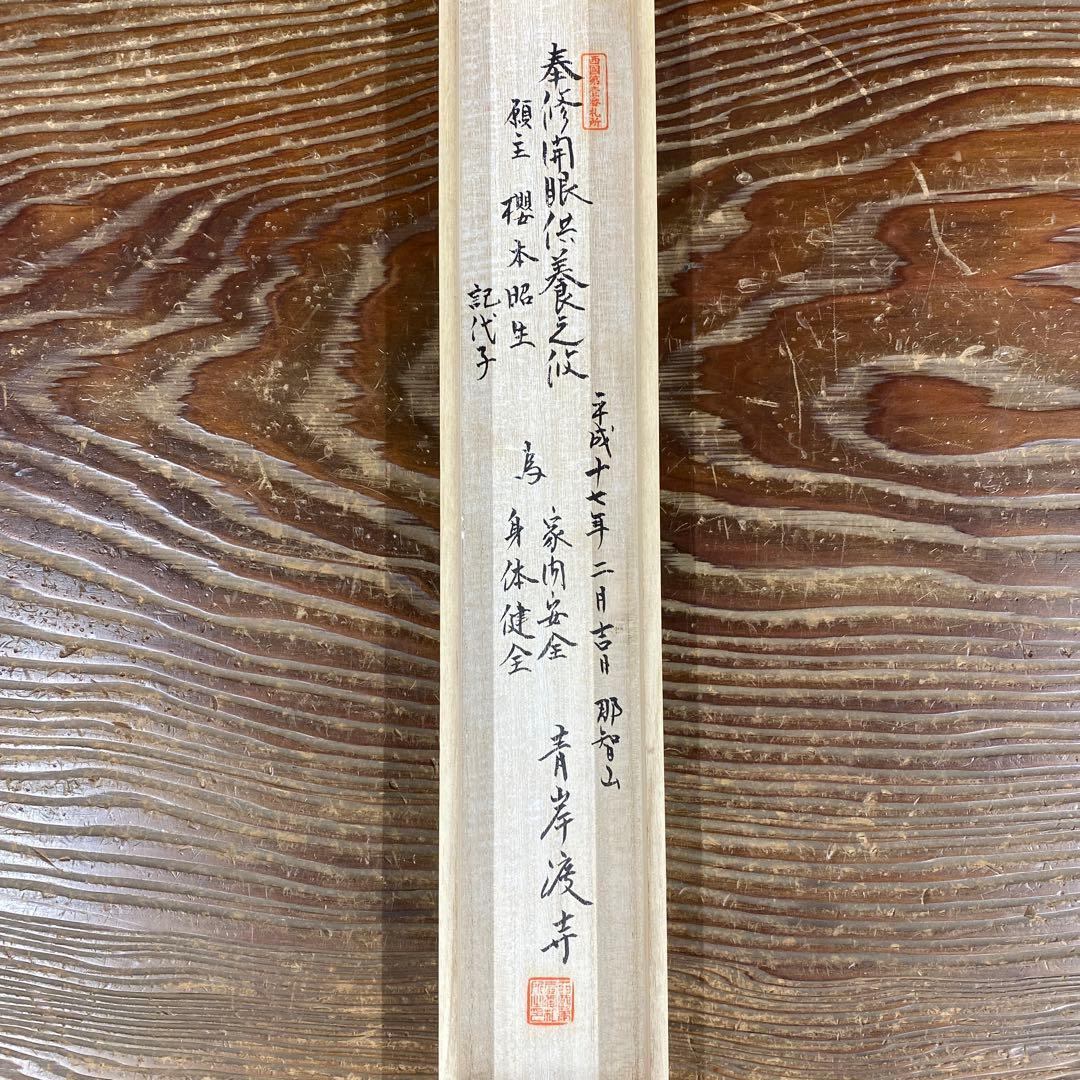 西國第壹番札所
平成十七年二月吉日 那智山
奉修開眼供養之攸
青岸渡寺
願主 櫻本昭生
記代子
為
家内安全
身体健全